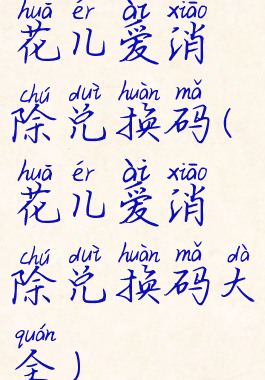 huā ér ài xiāo
花儿爱消
chú duì huàn mǎ
除兑换码(
huā ér ài xiāo
花儿爱消
chú duì huàn mǎ dà
除兑换码大
quán
全)